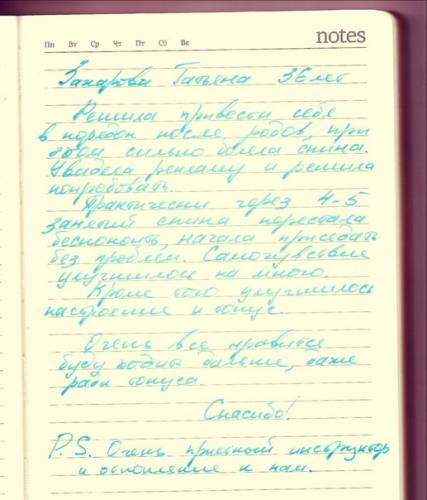 Пн Вт Ср Чт Пт Сб Вс
notes
Захарова Татьяна 36 лет
Решила привести себя
в порядок после родов, при
этом сильно болела спина.
Увидела рекламу и решила
попробовать.
Практически через 4-5
занятий спина перестала
беспокоить, начала приседать
без проблем. Самочувствие
улучшилось на много.
Кроме того улучшилось
настроение и тонус.
Очень все нравится
буду ходить дальше, даже
ради тонуса.
Спасибо!
P.S. Очень приятный инструктор
и отношение к нам.